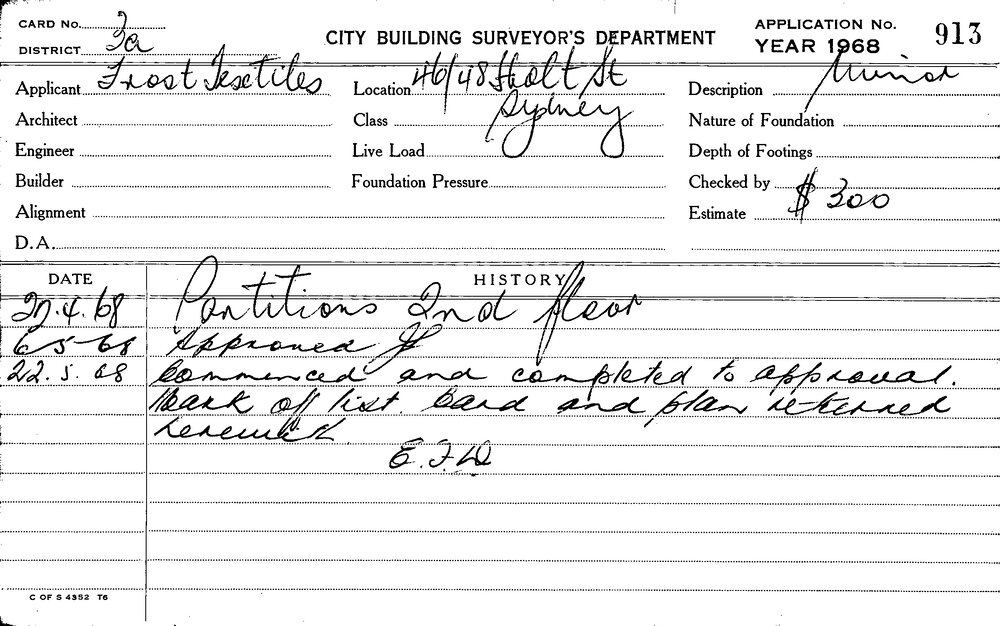 CARD No.
DISTRICT 3a
CITY BUILDING SURVEYOR'S DEPARTMENT
APPLICATION No. 913
YEAR 1968
Applicant Frost Textiles
Location 46/48 Holt St
Sydney
Description Minor
Architect
Class
Nature of Foundation
Engineer
Live Load
Depth of Footings
Builder
Foundation Pressure
Checked by
Alignment
Estimate $ 300
D.A.
DATE HISTORY
.4.68 Partitions 2nd floor
6-5-68 Approved
22.5.68 Commenced and completed to approval.
Mark off list. Card and plan returned
herewith.
E.F.W
C OF S 4352 T6